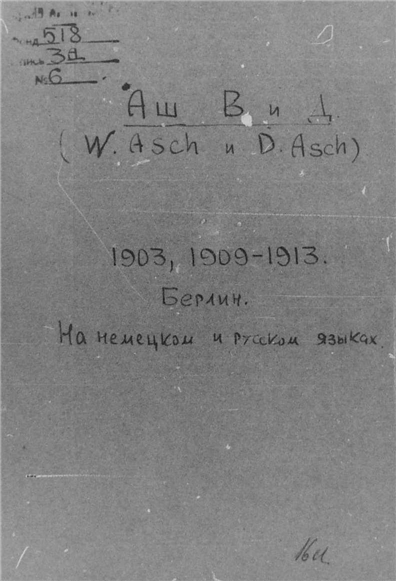 518
3д
№6
Аш В и Д.
(W. Asch и D. Asch)
1903, 1909-1913.
Берлин.
На немецком и русском языках.